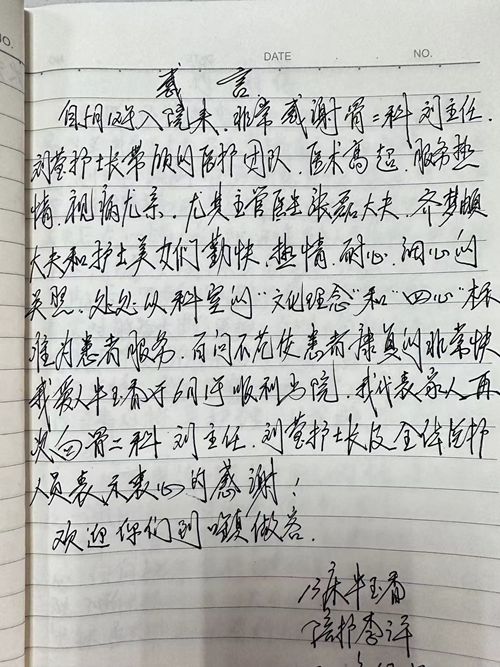 NO.
DATE
NO.
感言
自5月12号入院来,非常感谢骨二科刘主任.
刘莹护士长带领的医护团队.医术高超.服务热
情.视病尤亲.尤其主管医生张磊大夫.齐梦
大夫和护士美女们勤快.热情.耐心.细心的
关照.处处以科室的"文化理念"和"四心"标
准为患者服务.百问不厌使患者康复的非常快
我爱人牛玉香于6月 顺利出院.我代表家人再
次向骨二科刘主任.刘莹护士长及全体医护
人员表示衷心的感谢!
欢迎你们到 镇做客.
13床牛玉香
陪护李洋